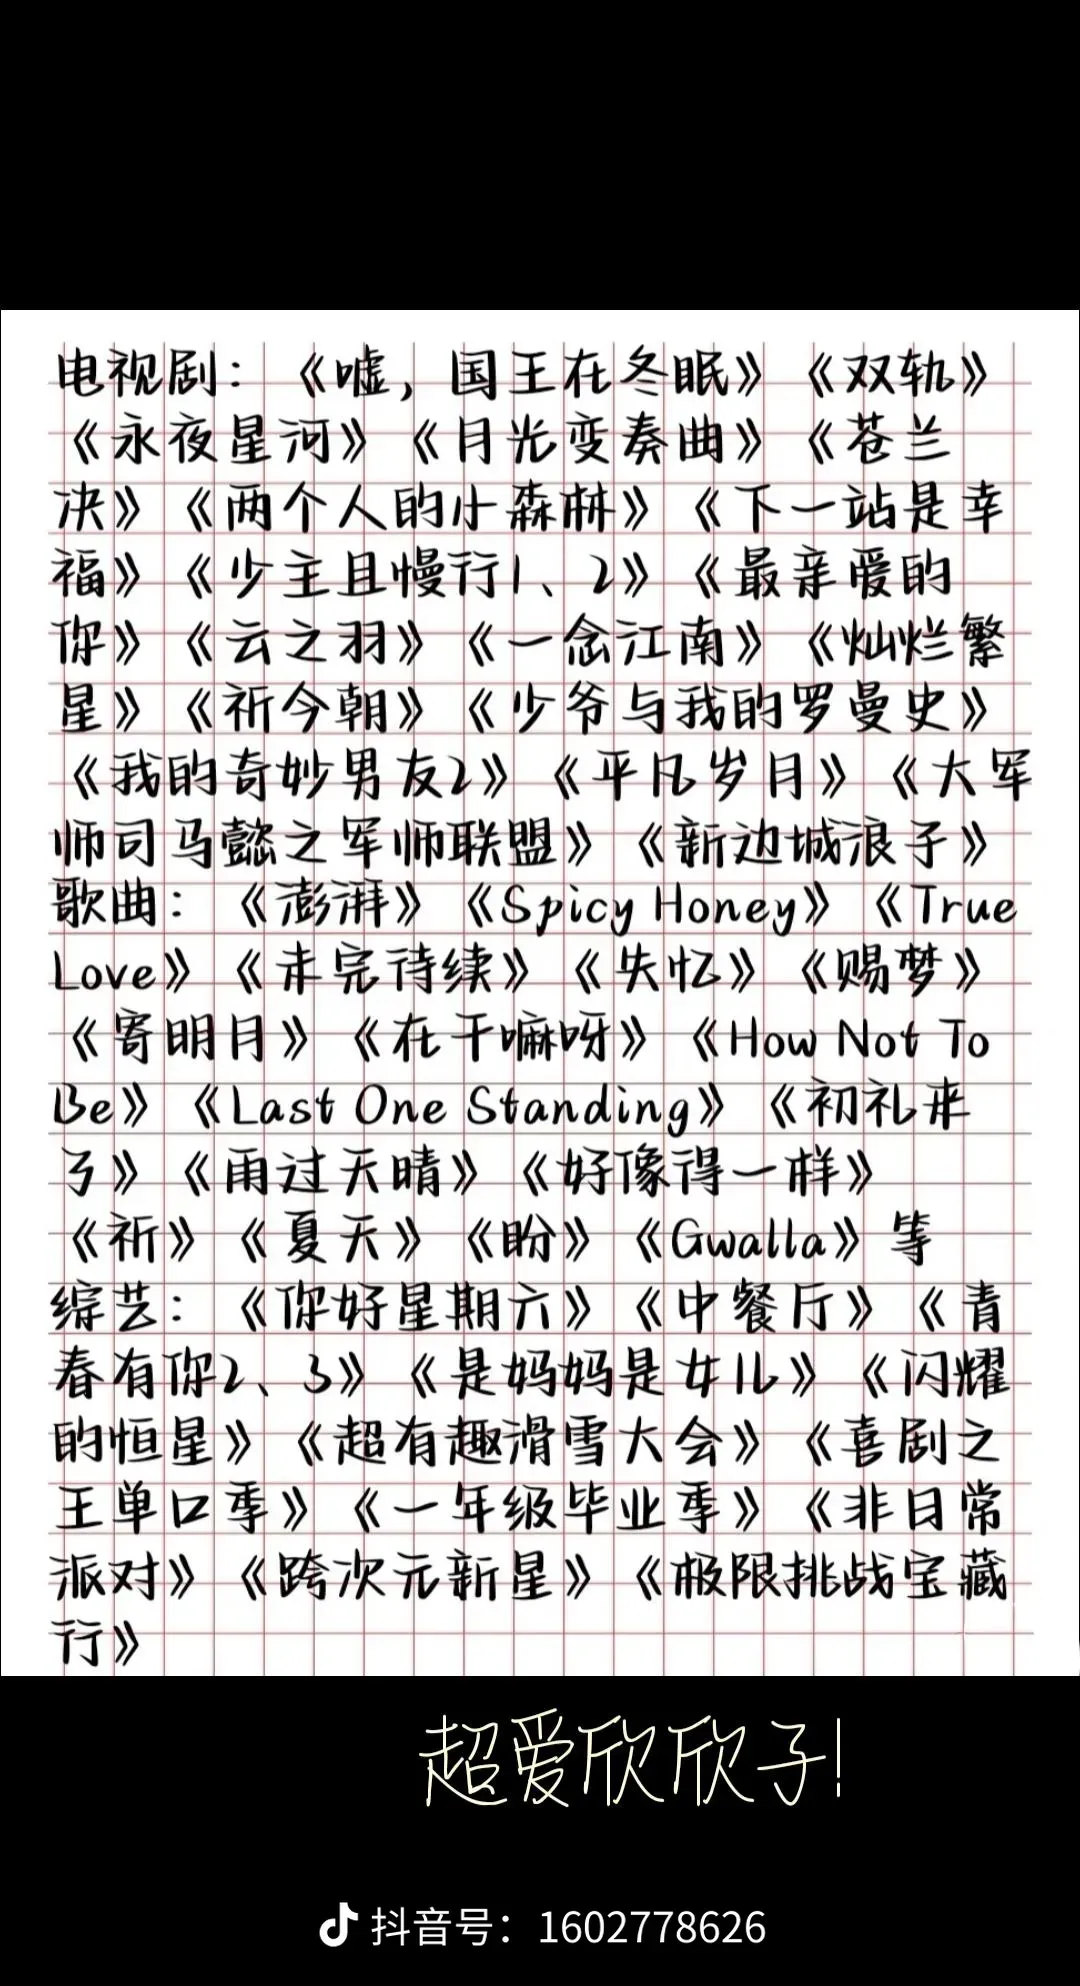 电视剧：《嘘，国王在冬眠》《双轨》
《永夜星河》《月光变奏曲》《苍兰
决》《两个人的小森林》《下一站是幸
福》《少主且慢行1、2》《最亲爱的
你》《云之羽》《一念江南》《灿烂繁
星》《祈今朝》《少爷与我的罗曼史》
《我的奇妙男友2》《平凡岁月》《大军
师司马懿之军师联盟》《新边城浪子》
歌曲：《澎湃》《Spicy Honey》《True
Love》《未完待续》《失忆》《赐梦》
《寄明月》《在干嘛呀》《How Not To
Be》《Last One Standing》《初礼来
了》《雨过天晴》《好像得一样》
《祈》《夏天》《盼》《Gwalla》等
综艺：《你好星期六》《中餐厅》《青
春有你2、3》《是妈妈是女儿》《闪耀
的恒星》《超有趣滑雪大会》《喜剧之
王单口季》《一年级毕业季》《非日常
派对》《跨次元新星》《极限挑战宝藏
行》
超爱欣欣子!
抖音号：1602778626